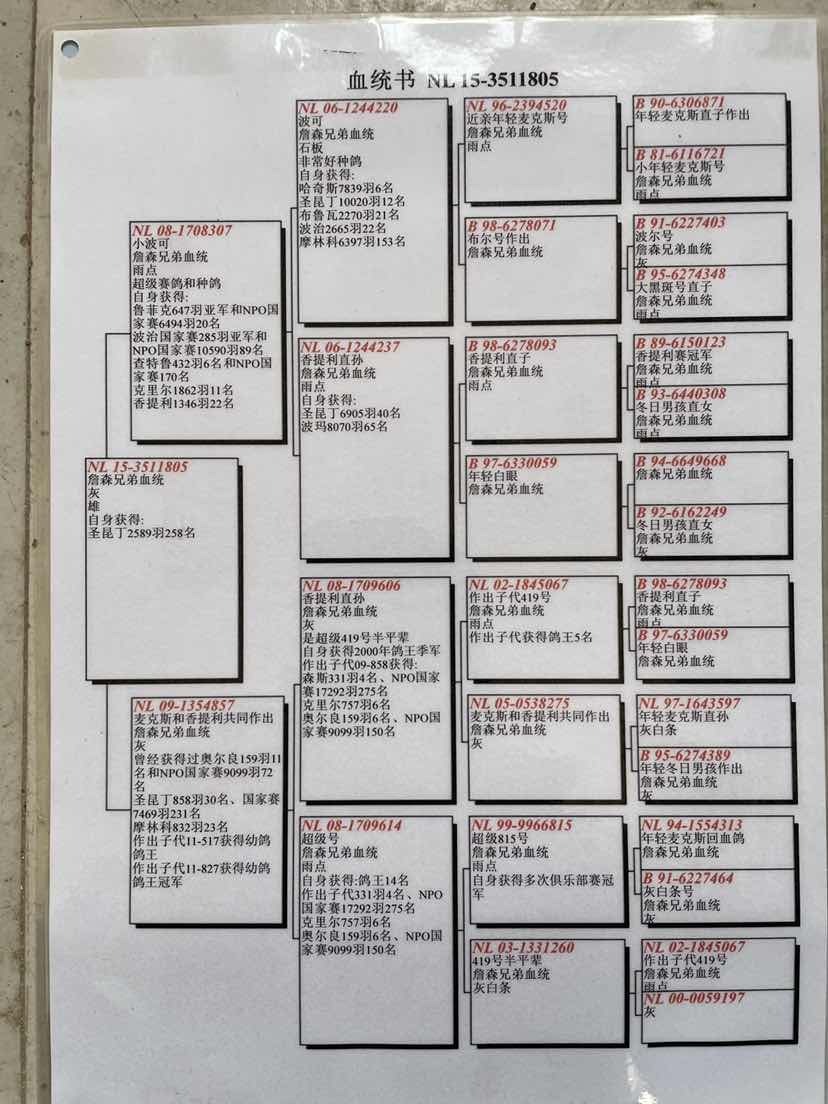 血统书 NL 15-3511805
NL 15-3511805
詹森兄弟血统
灰
雄
自身获得:
圣昆丁2589羽258名
NL 08-1708307
小波可
詹森兄弟血统
雨点
超级赛鸽和种鸽
自身获得:
鲁菲克647羽亚军和NPO国
家赛6494羽20名
波治国家赛285羽亚军和
NPO国家赛10590羽89名
查特鲁432羽6名和NPO国
家赛170名
克里尔1862羽11名
香提利1346羽22名
NL 09-1354857
麦克斯和香提利共同作出
詹森兄弟血统
灰
曾经获得过奥尔良159羽11
名和NPO国家赛9099羽72
名
圣昆丁858羽30名、国家赛
7469羽231名
摩林科832羽23名
作出子代11-517获得幼鸽
鸽王
作出子代11-827获得幼鸽
鸽王冠军
NL 06-1244220
波可
詹森兄弟血统
石板
非常好种鸽
自身获得:
哈奇斯7839羽6名
圣昆丁10020羽12名
布鲁瓦2270羽21名
波治2665羽22名
摩林科6397羽153名
NL 06-1244237
香提利直孙
詹森兄弟血统
雨点
自身获得:
圣昆丁6905羽40名
波玛8070羽65名
NL 08-1709606
香提利直孙
詹森兄弟血统
灰
是超级419号半平辈
自身获得2000年鸽王季军
作出子代09-858获得:
森斯331羽4名、NPO国家
赛17292羽275名
克里尔757羽6名
奥尔良159羽6名、NPO国
家赛9099羽150名
NL 08-1709614
超级号
詹森兄弟血统
雨点
自身获得:鸽王14名
作出子代331羽4名、NPO
国家赛17292羽275名
克里尔757羽6名
奥尔良159羽6名、NPO国
家赛9099羽150名
NL 96-2394520
近亲年轻麦克斯号
詹森兄弟血统
雨点
B 98-6278071
布尔号作出
詹森兄弟血统
B 98-6278093
香提利直子
詹森兄弟血统
雨点
B 97-6330059
年轻白眼
詹森兄弟血统
NL 02-1845067
作出子代419号
詹森兄弟血统
雨点
作出子代获得鸽王5名
NL 05-0538275
麦克斯和香提利共同作出
詹森兄弟血统
灰
NL 99-9966815
超级815号
詹森兄弟血统
雨点
自身获得多次俱乐部赛冠
军
NL 03-1331260
419号半平辈
詹森兄弟血统
灰白条
B 90-6306871
年轻麦克斯直子作出
B 81-6116721
小年轻麦克斯号
詹森兄弟血统
雨点
B 91-6227403
波尔号
詹森兄弟血统
灰
B 95-6274348
大黑斑号直子
詹森兄弟血统
雨点
B 89-6150123
香提利赛冠军
詹森兄弟血统
雨点
B 93-6440308
冬日男孩直女
詹森兄弟血统
雨点
B 94-6649668
詹森兄弟血统
B 92-6162249
冬日男孩直女
詹森兄弟血统
灰
B 98-6278093
香提利直子
詹森兄弟血统
雨点
B 97-6330059
年轻白眼
詹森兄弟血统
NL 97-1643597
年轻麦克斯直孙
灰白条
B 95-6274389
年轻冬日男孩作出
灰
NL 94-1554313
年轻麦克斯回血鸽
詹森兄弟血统
B 91-6227464
灰白条号
詹森兄弟血统
灰
NL 02-1845067
作出子代419号
詹森兄弟血统
雨点
NL 00-0059197
灰